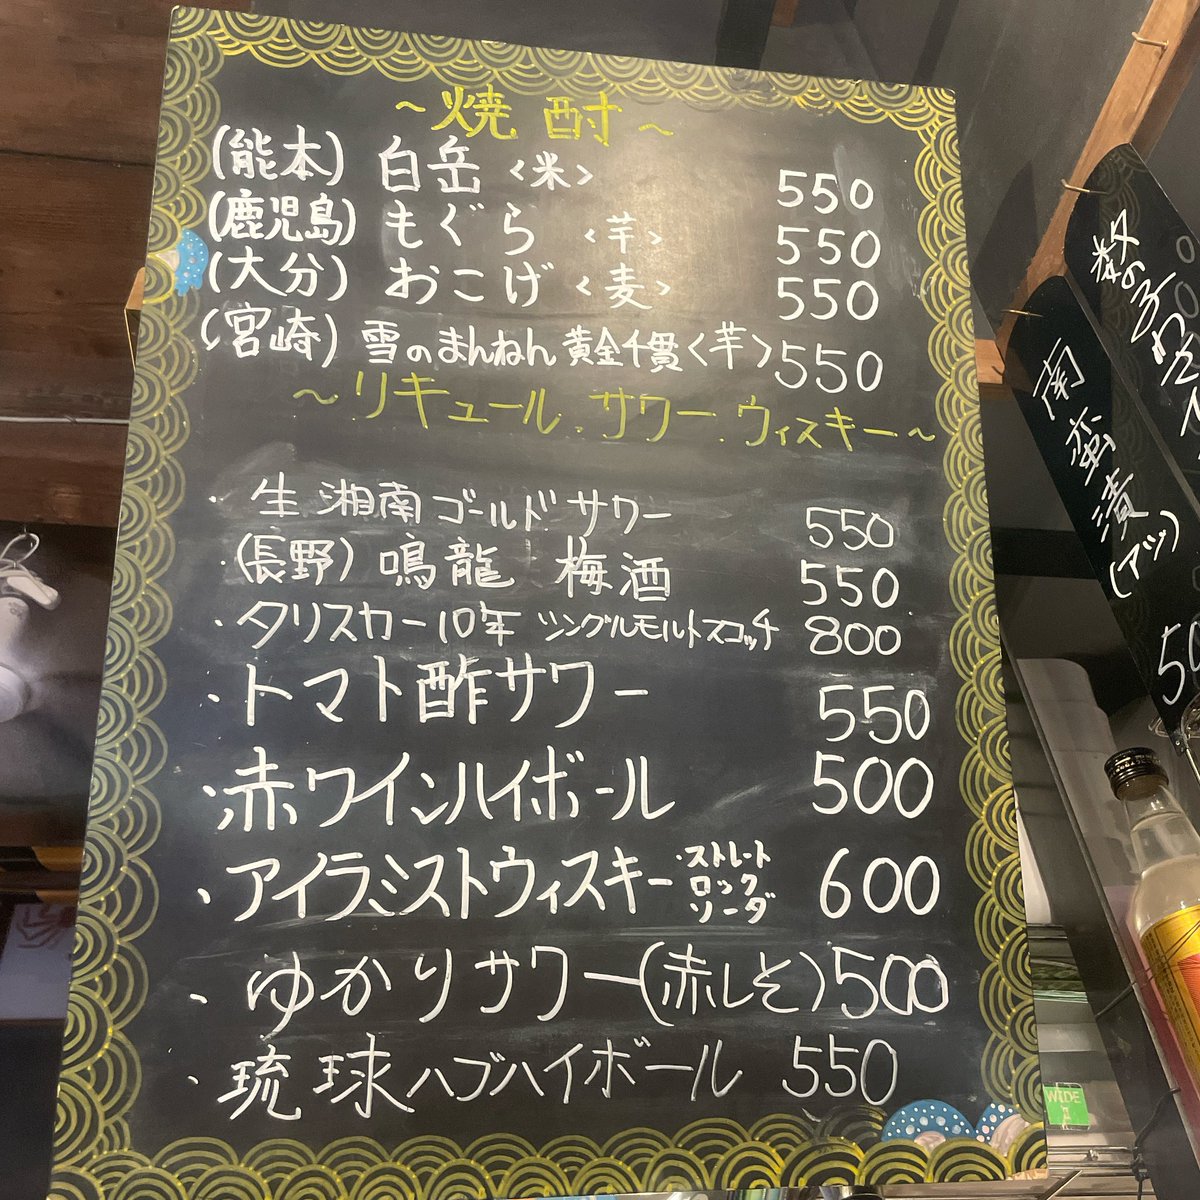 ～焼酎～
(熊本) 白岳 <米> 550
(鹿児島) もぐら <芋> 550
(大分) おこげ <麦> 550
(宮崎) 雪のまんねん 黄金千貫 <芋> 550
～リキュール.サワー.ウィスキー～
・生 湘南ゴールドサワー 550
・(長野) 鳴龍 梅酒 550
・タリスカー10年 シングルモルトスコッチ 800
・トマト酢サワー 550
・赤ワインハイボール 500
・アイラミストウィスキー ・ストレート ロック ソーダ 600
・ゆかりサワー(赤しそ) 500
・琉球ハブハイボール 550
数の子わさ
南蛮漬(アツ)
50
WIDE